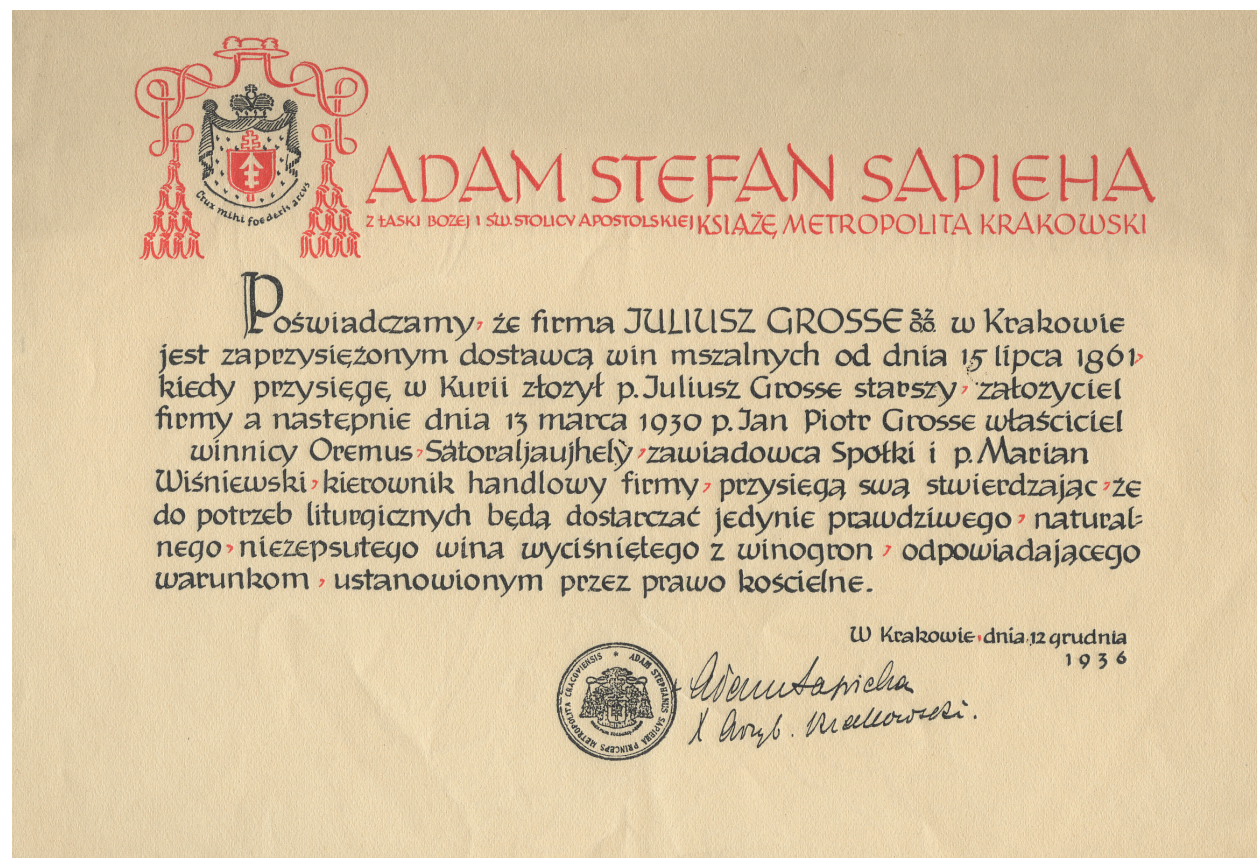 Crux mihi foederis arcus
ADAM STEFAN SAPIEHA
Z ŁASKI BOŻEJ I ŚW. STOLICY APOSTOLSKIEJ KSIĄŻĘ METROPOLITA KRAKOWSKI
Poświadczamy, że firma JULIUSZ GROSSE SZ OO. w Krakowie
jest zaprzysiężonym dostawcą win mszalnych od dnia 15 lipca 1861,
kiedy przysięgę w Kurii złożył p. Juliusz Grosse starszy, założyciel
firmy a następnie dnia 13 marca 1930 p. Jan Piotr Grosse właściciel
winnicy Oremus, Sàtoraljaujhelỳ, zawiadowca Spółki i p. Marian
Wiśniewski, kierownik handlowy firmy, przysięgą swą stwierdzając, że
do potrzeb liturgicznych będą dostarczać jedynie prawdziwego, natural=
nego, niezepsutego wina wyciśniętego z winogron, odpowiadającego
warunkom, ustanowionym przez prawo kościelne.
W Krakowie, dnia 12 grudnia
1936
ADAM STEPHANUS SAPIEHA PRINCEPS METROPOLITA CRACOVIENSIS
+ Adam Sapieha
X Arcyb. Krakowski.